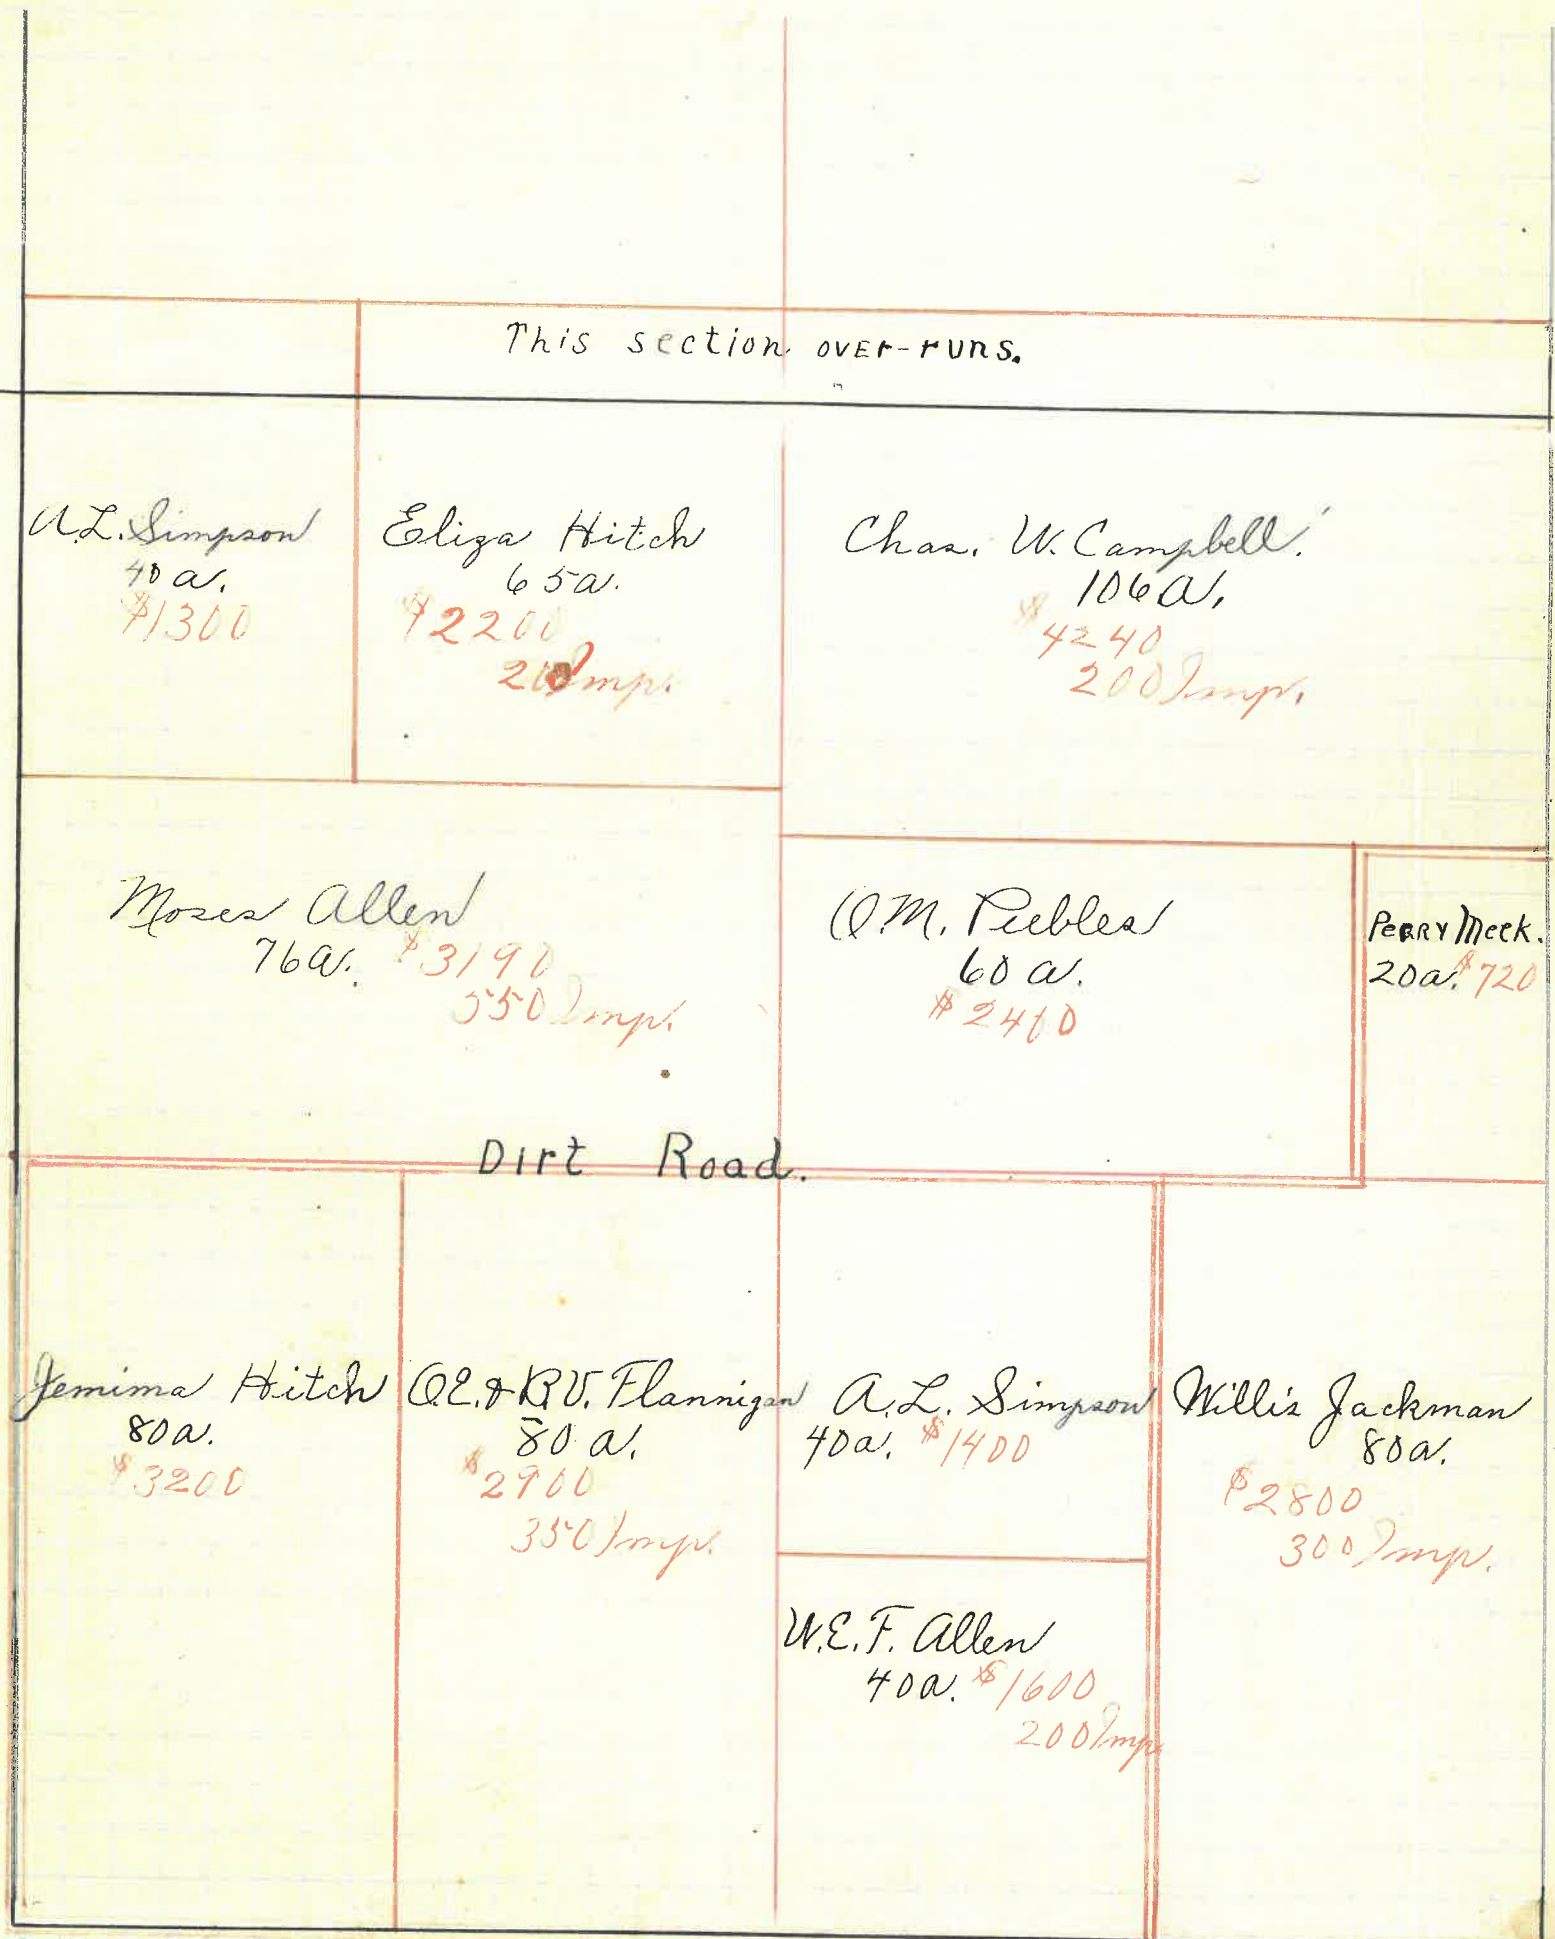 This section over-runs.
A.L. Simpson
40 a.
$1300
Eliza Hitch
65a.
$2200
Imp.
Chas. W. Campbell.
106 a.
$4240
200 Imp.
Moses Allen
76a. $3190
550 Imp.
O.M. Peebles
60 a.
$2400
Perry Meek.
20a. $720
Dirt Road.
Jemima Hitch
80a.
$3200
O.E. & R.V. Flannigan
80 a.
$2900
350 Imp.
A.L. Simpson
40a. $1400
Willis Jackman
80a.
$2800
300 Imp.
W.E.F. Allen
40a. $1600
200 Imp.